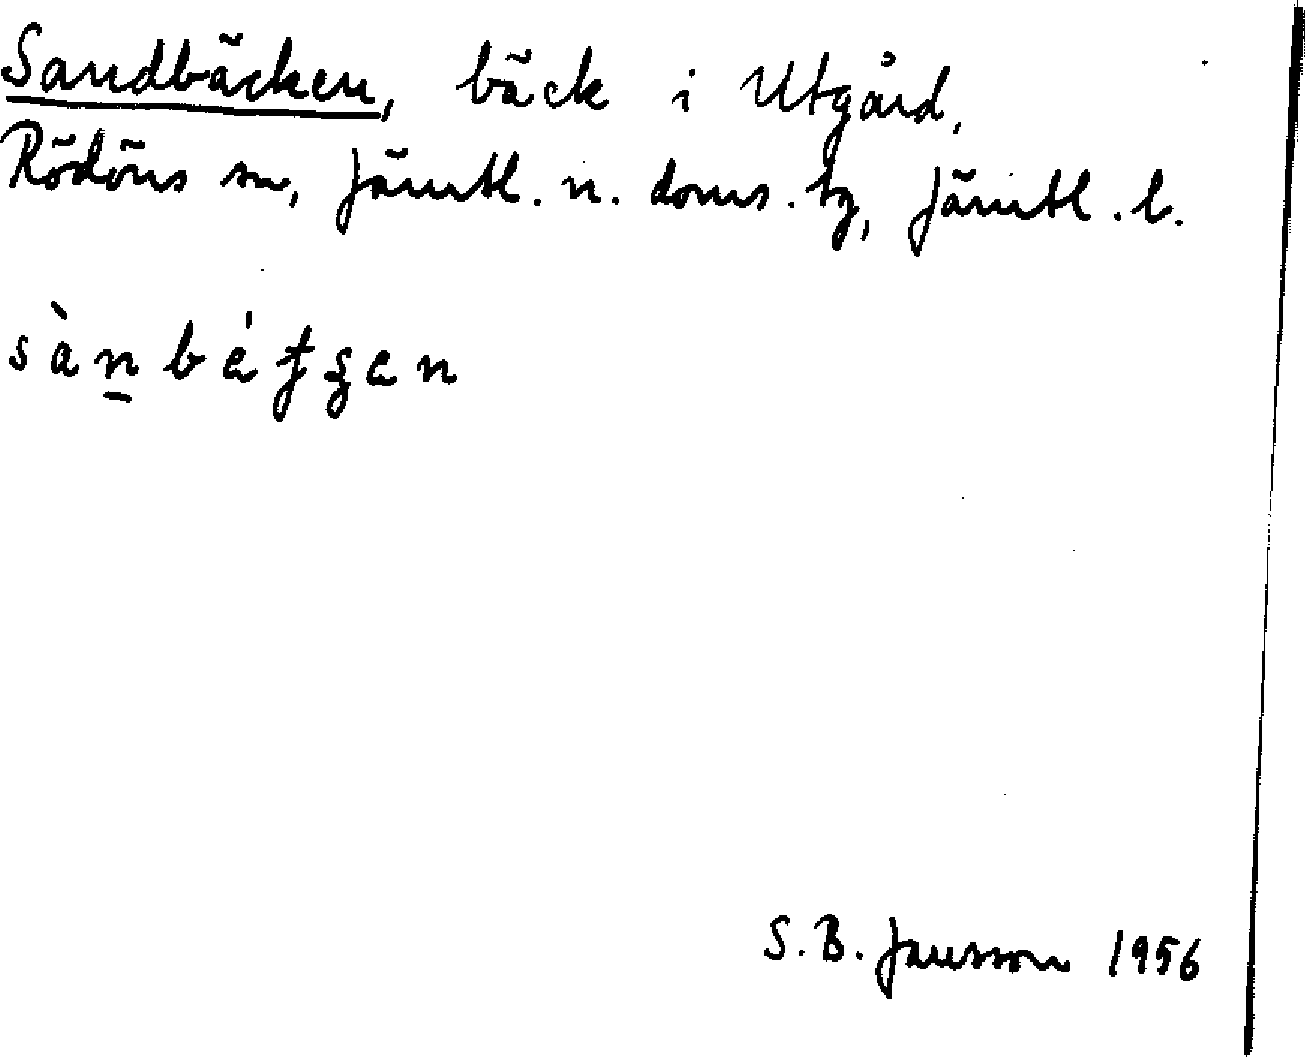 Sandbäcken, bäck i Utgård,
Rödöns sn, Jämtl. n. doms. tg, Jämtl. l.
sàn̲béʈʂen
S. B. Jansson 1956